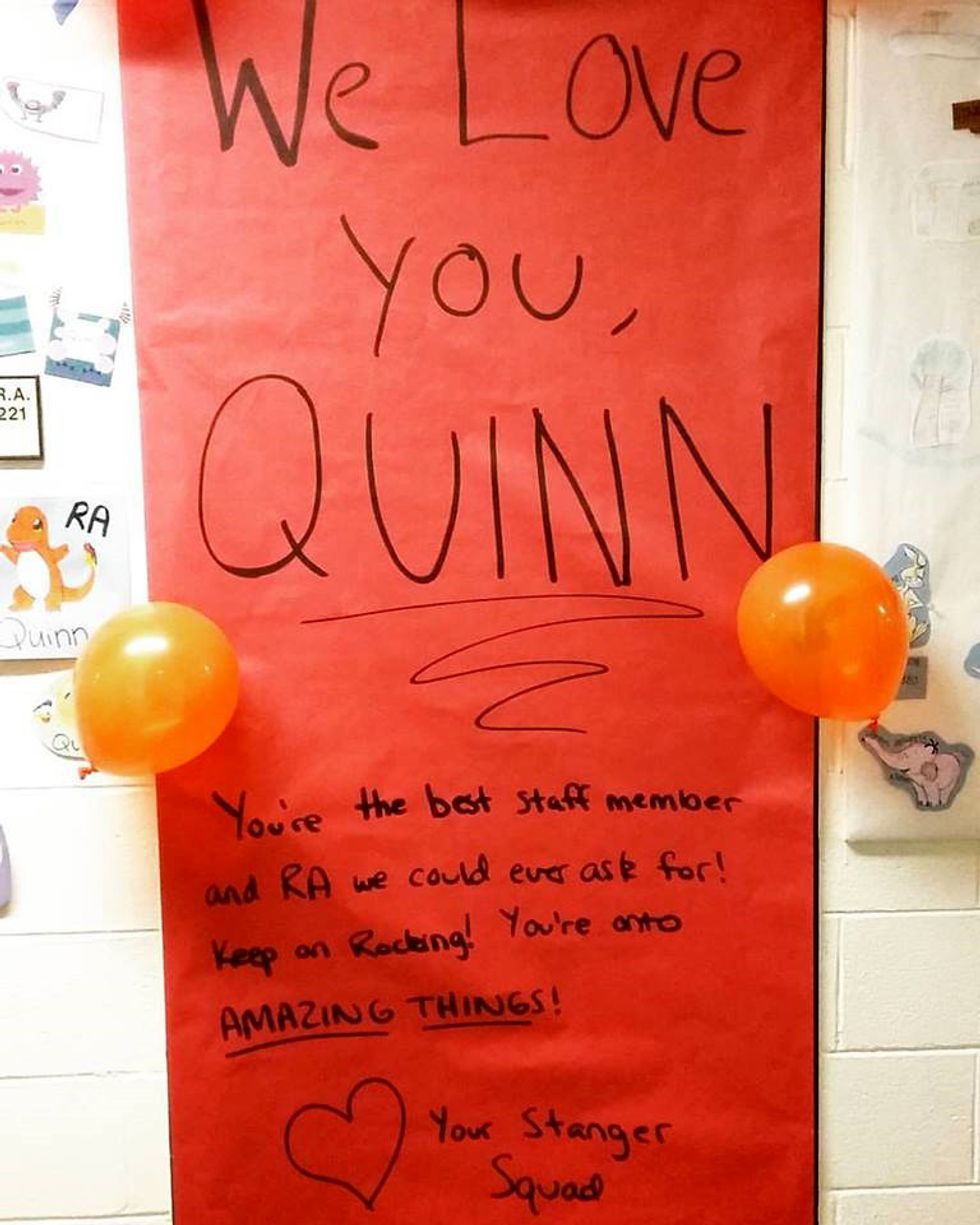 We Love
You,
QUINN
You're the best staff member
and RA we could ever ask for!
Keep on Rocking! You're onto
AMAZING THINGS!
Your Stanger
Squad
R.A.
221
RA
Quinn